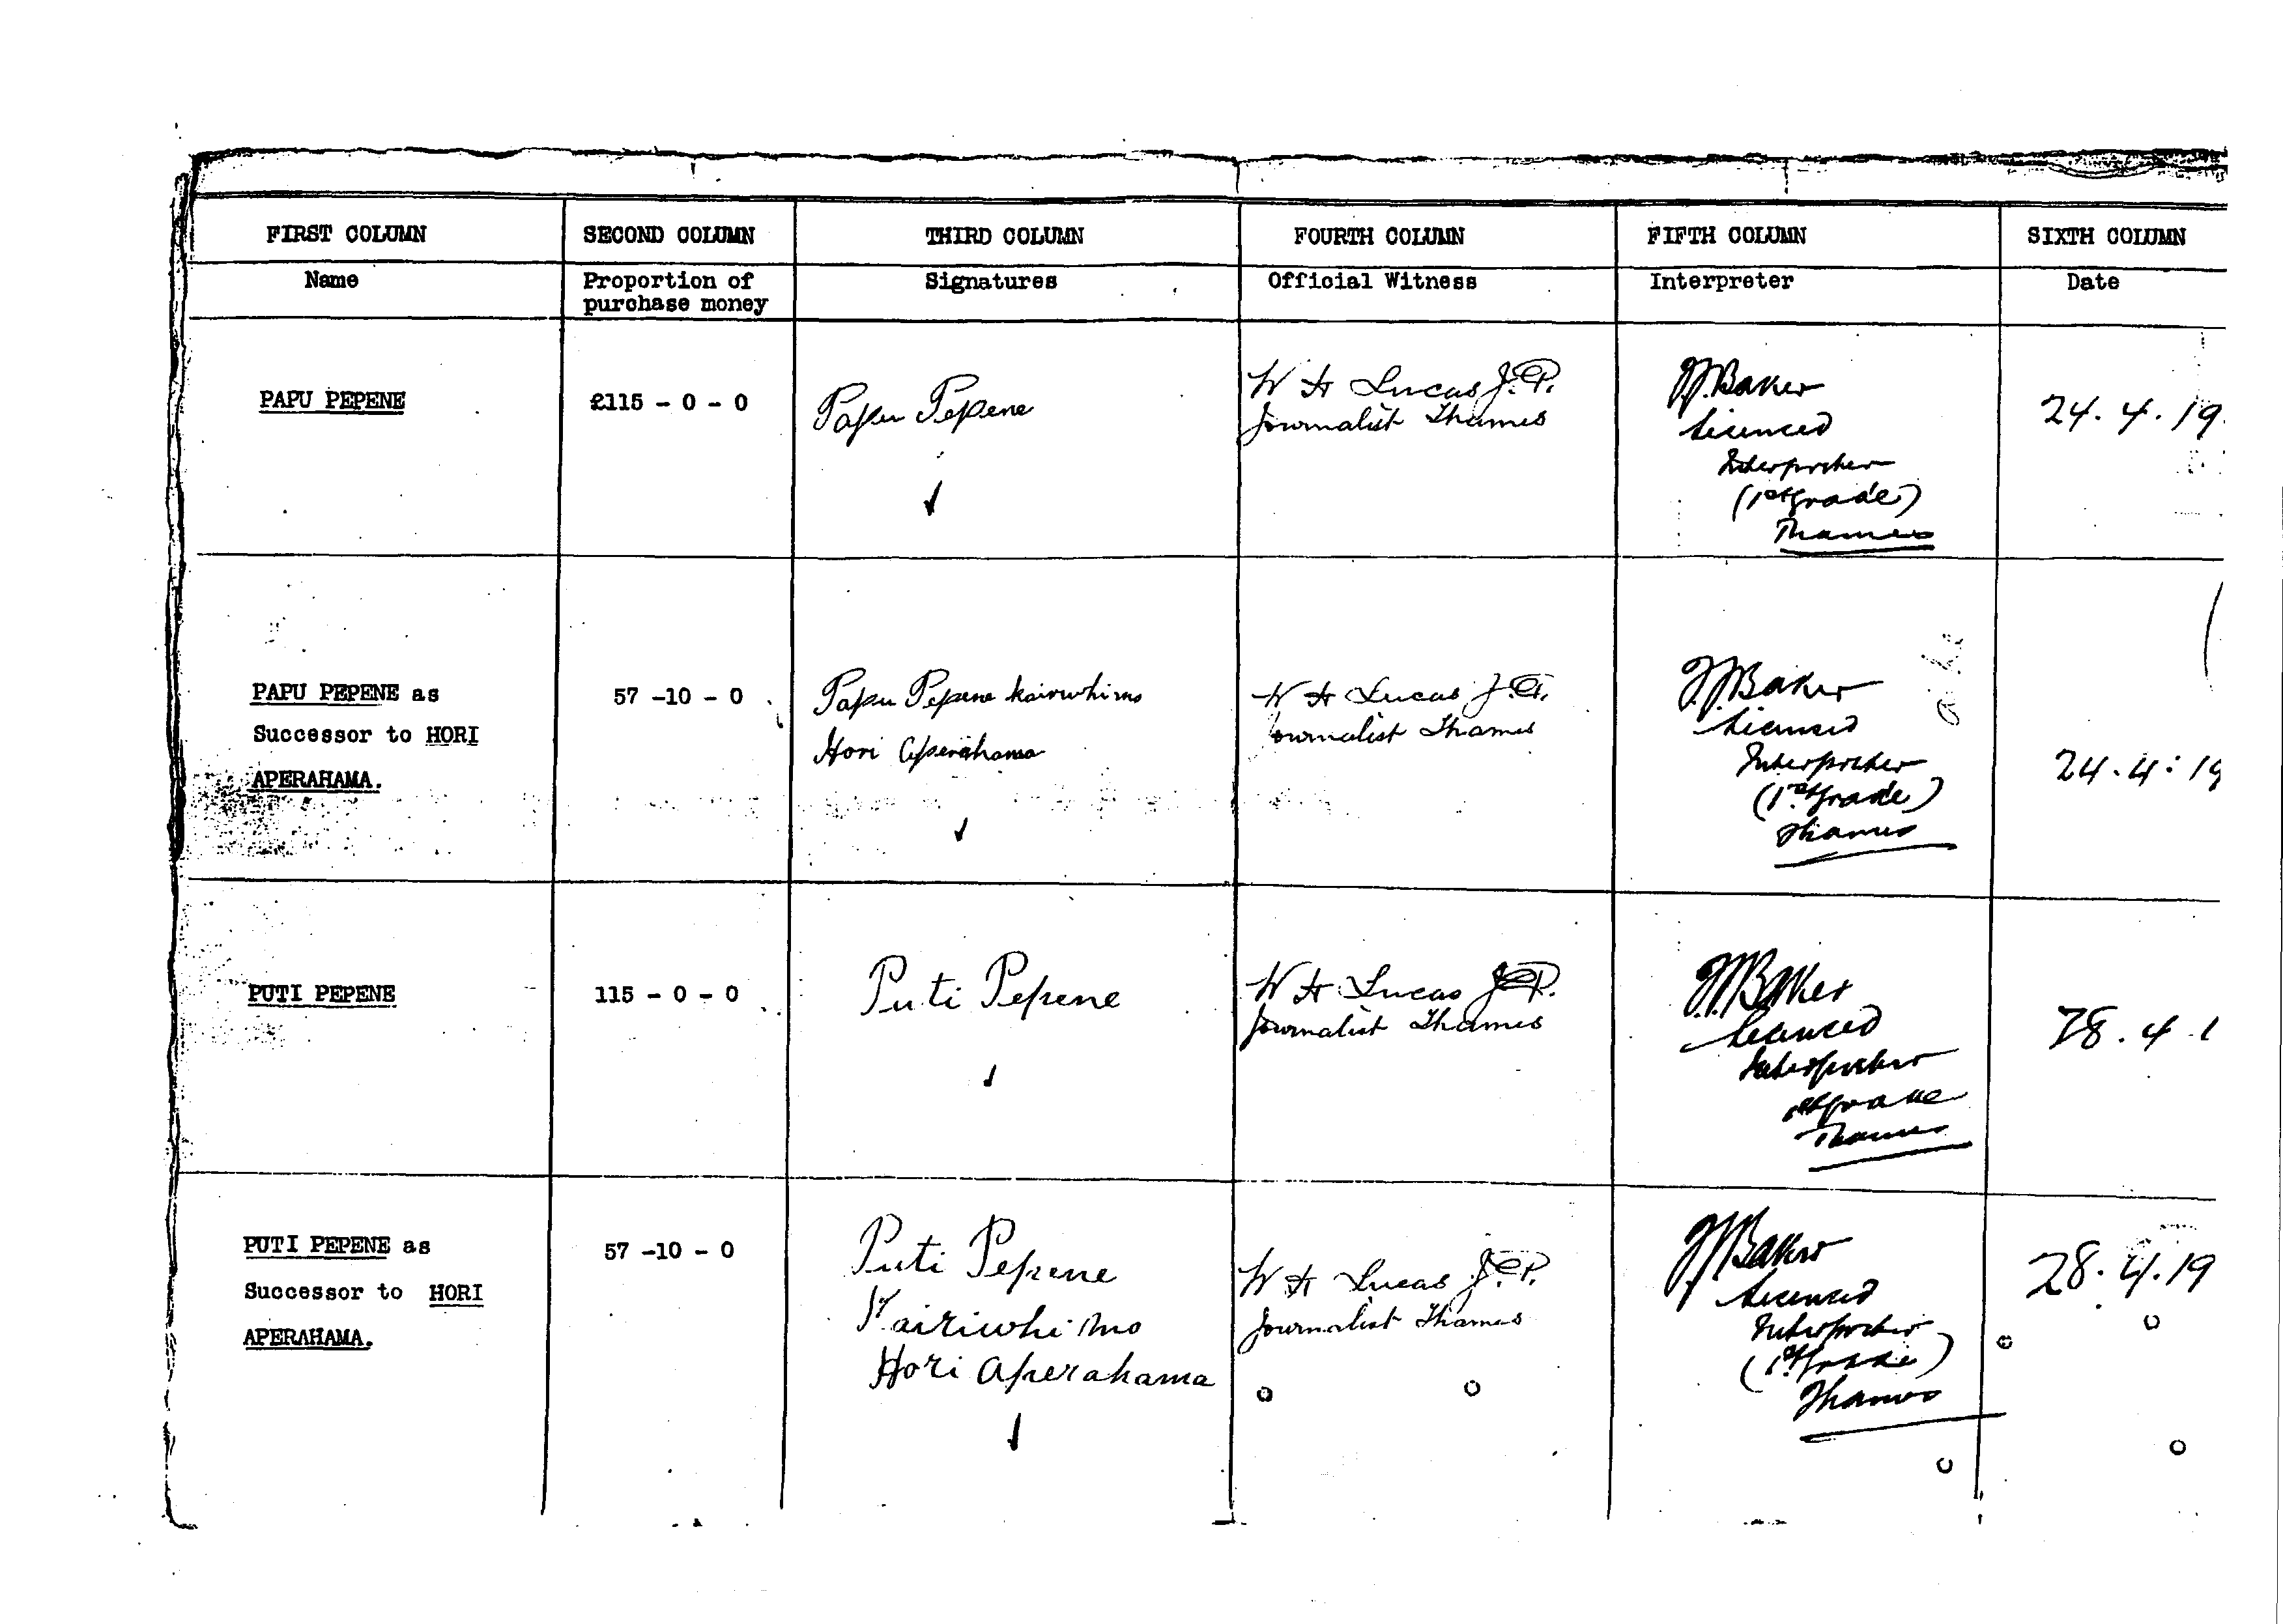 FIRST COLUMN SECOND COLUMN THIRD COLUMN FOURTH COLUMN FIFTH COLUMN SIXTH COLUMN
Name Proportion of Signatures Official Witness Interpreter Date
purchase money
PAPU PEPENE £115 - 0 - 0 Papu Pepene
W H Lucas J.P.
Journalist Thames
J.J. Baker
Licensed
Interpreter
(1st grade)
Thames
24. 4. 19
PAPU PEPENE as
Successor to HORI
APERAHAMA.
57 -10 - 0
Papu Pepene kairiwhi mo
Hori Aperahama
W H Lucas J.P.
Journalist Thames
J.J. Baker
Licensed
Interpreter
(1st grade)
Thames
24. 4. 19
PUTI PEPENE 115 - 0 - 0 Puti Pepene
W H Lucas J.P.
Journalist Thames
J.J. Baker
Licensed
Interpreter
1st grade
Thames
28. 4 1
PUTI PEPENE as
Successor to HORI
APERAHAMA.
57 -10 - 0
Puti Pepene
Kairiwhi mo
Hori Aperahama
W H Lucas J.P.
Journalist Thames
J.J. Baker
Licensed
Interpreter
(1st grade)
Thames
28. 4. 19